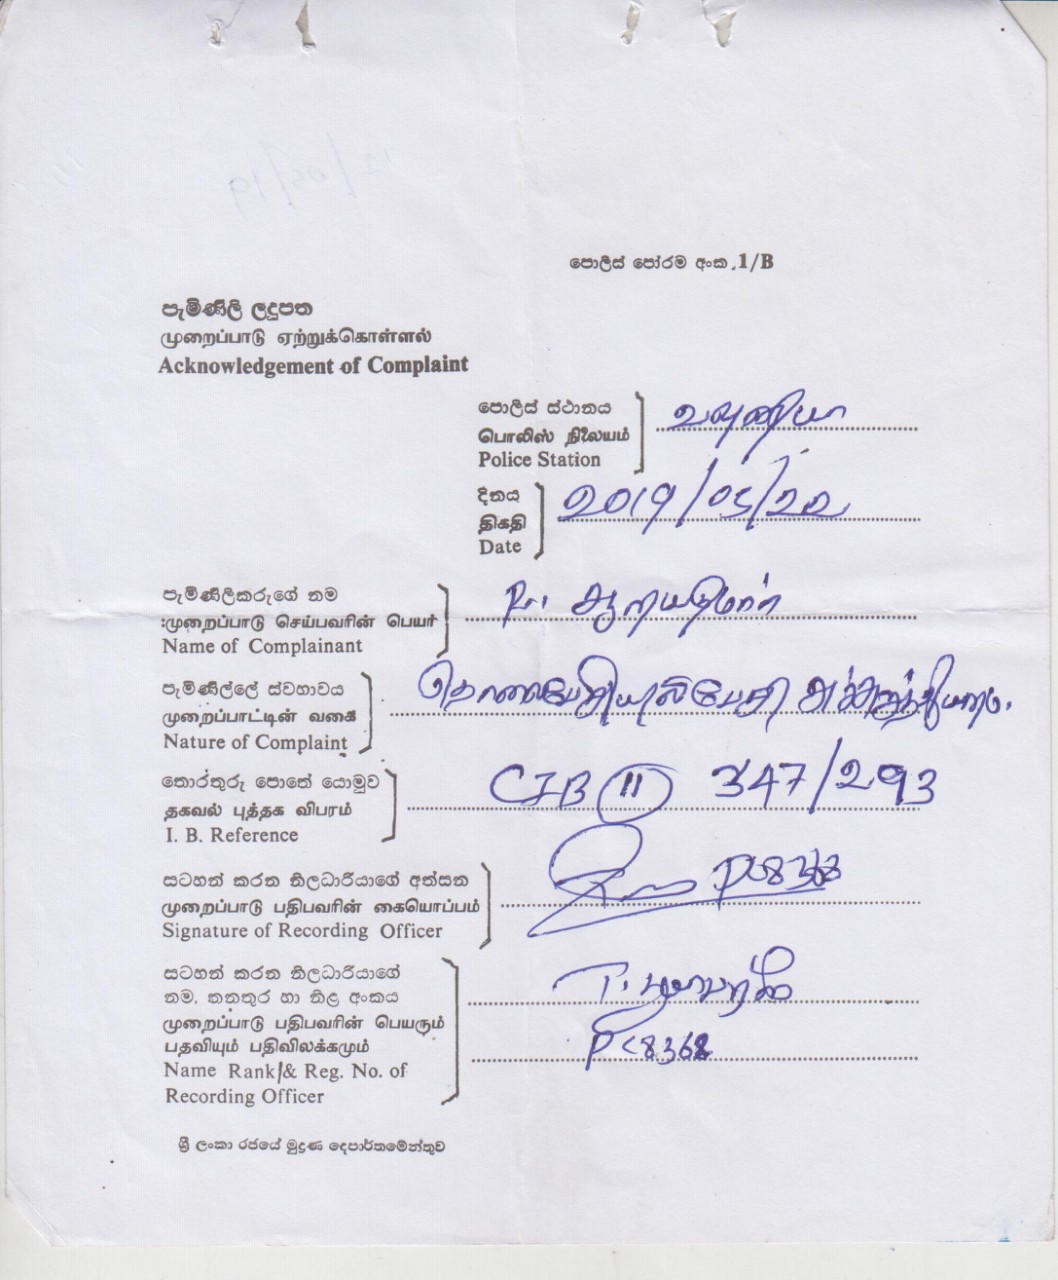 පොලිස් පෝරම අංක .1/B
පැමිණිලි ලදුපත
முறைப்பாடு ஏற்றுக்கொள்ளல்
Acknowledgement of Complaint
පොලිස් ස්ථානය
பொலிஸ் நிலையம் வவுனியா
Police Station
දිනය
திகதி 2019/05/22
Date
පැමිණිලිකරුගේ නම
முறைப்பாடு செய்பவரின் பெயர்
Name of Complainant
පැමිණිල්ලේ ස්වභාවය
முறைப்பாட்டின் வகை தொலைபேசியில் பேசி
Nature of Complaint
තොරතුරු පොතේ යොමුව
தகவல் புத்தக விபரம் CIB 11 347/293
I. B. Reference
සටහන් කරන නිලධාරියාගේ අත්සන
முறைப்பாடு பதிபவரின் கையொப்பம் PC8368
Signature of Recording Officer
සටහන් කරන නිලධාරියාගේ
නම, තනතුර හා නිළ අංකය T.
முறைப்பாடு பதிபவரின் பெயரும்
பதவியும் பதிவிலக்கமும் PC8368
Name Rank/& Reg. No. of
Recording Officer
ශ්‍රී ලංකා රජයේ මුද්‍රණ දෙපාර්තමේන්තුව